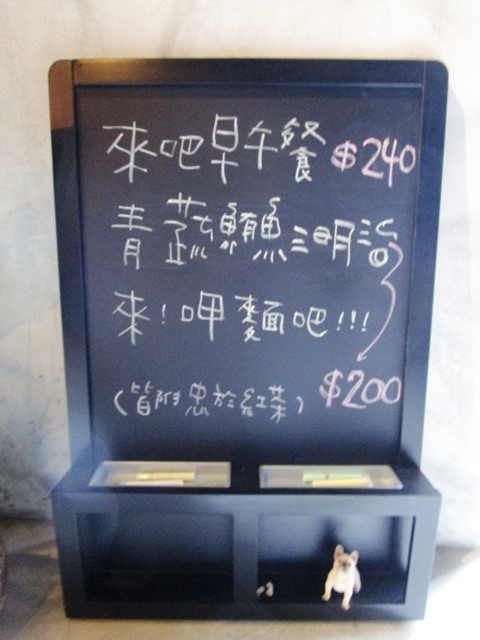 來吧早午餐 $240
青蔬鮪魚三明治
來!呷麵吧!!!
$200
(皆附忠於紅茶)